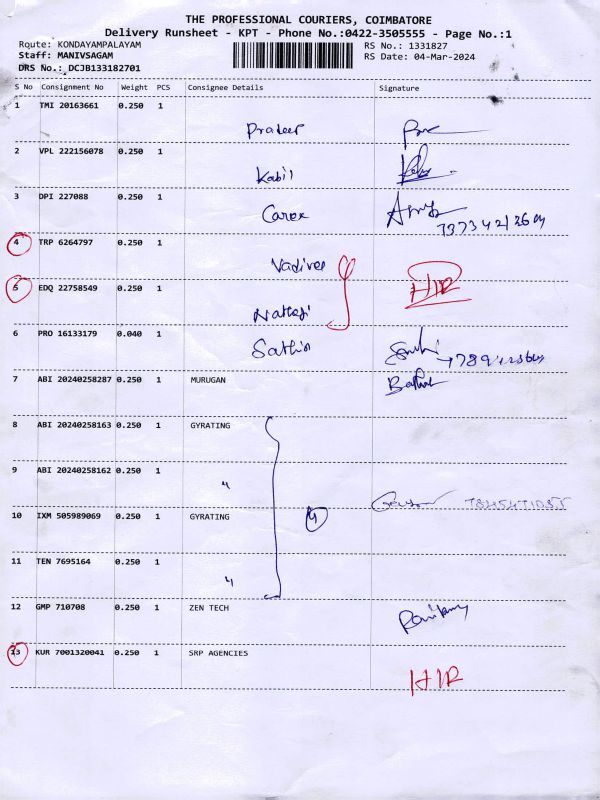 THE PROFESSIONAL COURIERS, COIMBATORE
Delivery Runsheet - KPT - Phone No.:0422-3505555 - Page No.:1
Route: KONDAYAMPALAYAM RS No.: 1331827
Staff: MANIVSAGAM RS Date: 04-Mar-2024
DRS No.: DCJB133182701
S No Consignment No Weight PCS Consignee Details Signature
1 TMI 20163661 0.250 1
Pradeep
2 VPL 222156078 0.250 1
Kabil
3 DPI 227088 0.250 1
4 TRP 6264797 0.250 1
Vadivel
5 EDQ 22758549 0.250 1 HIR
6 PRO 16133179 0.040 1
7 ABI 20240258287 0.250 1 MURUGAN
8 ABI 20240258163 0.250 1 GYRATING
9 ABI 20240258162 0.250 1
"
10 IXM 505989069 0.250 1 GYRATING 4
11 TEN 7695164 0.250 1
"
12 GMP 710708 0.250 1 ZEN TECH
13 KUR 7001320041 0.250 1 SRP AGENCIES
HIR